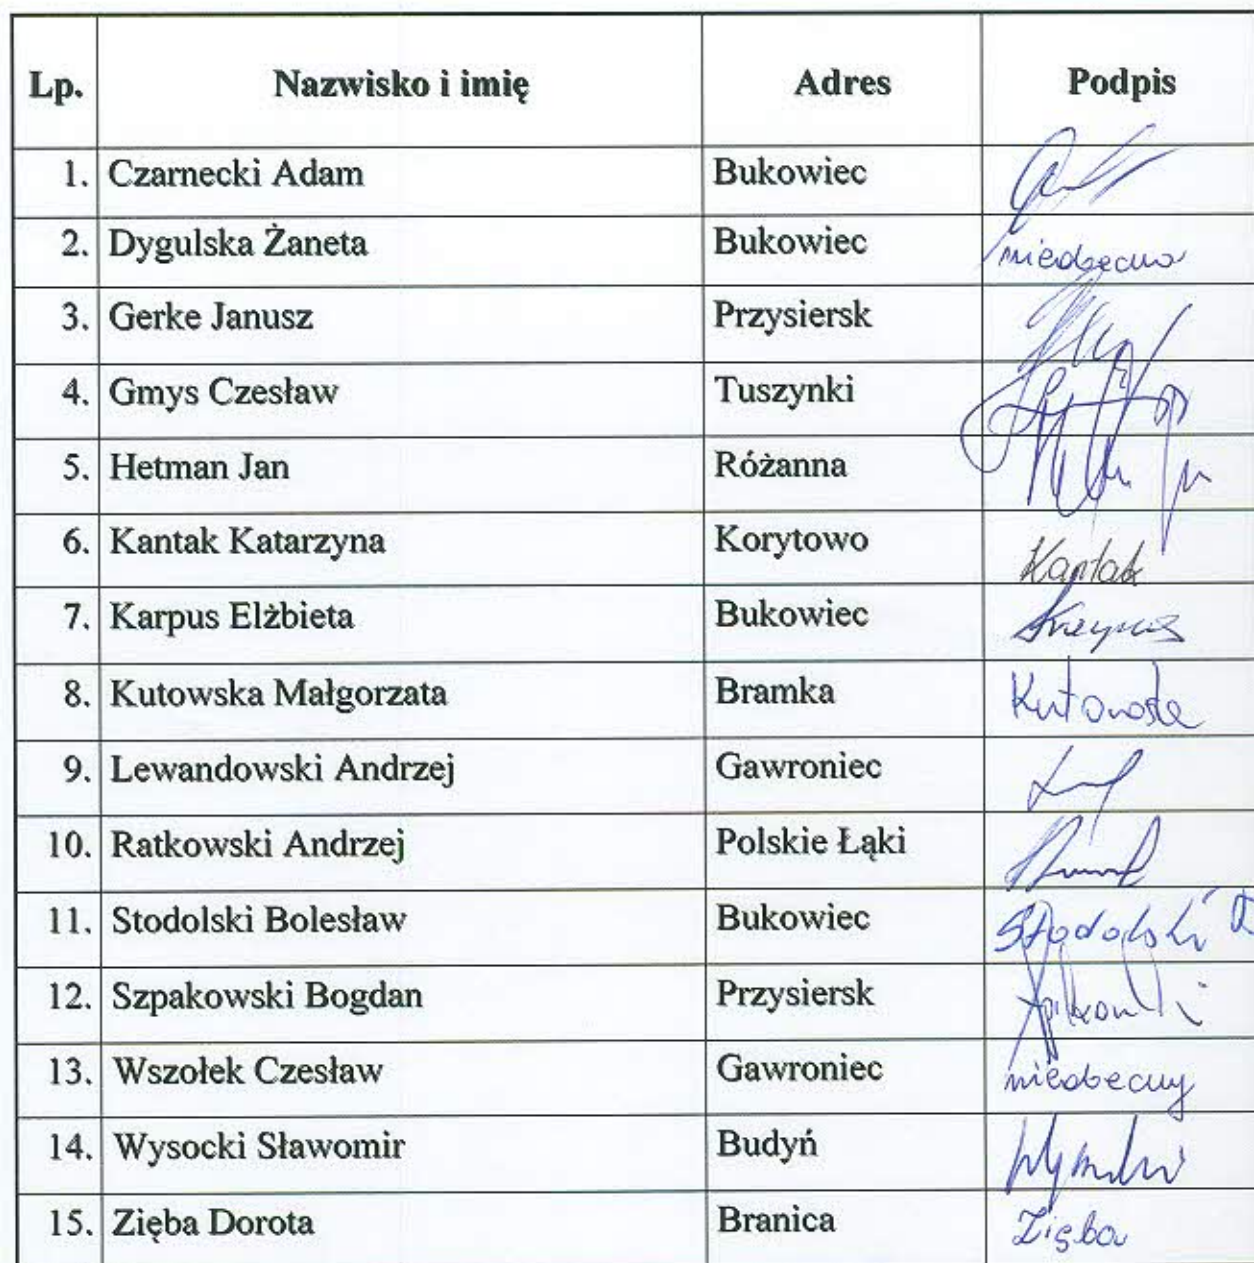 Lp. Nazwisko i imię Adres Podpis
1. Czarnecki Adam Bukowiec
2. Dygulska Żaneta Bukowiec nieobecna
3. Gerke Janusz Przysiersk
4. Gmys Czesław Tuszynki
5. Hetman Jan Różanna
6. Kantak Katarzyna Korytowo Kantak
7. Karpus Elżbieta Bukowiec
8. Kutowska Małgorzata Bramka Kutowska
9. Lewandowski Andrzej Gawroniec
10. Ratkowski Andrzej Polskie Łąki
11. Stodolski Bolesław Bukowiec Stodolski
12. Szpakowski Bogdan Przysiersk
13. Wszołek Czesław Gawroniec nieobecny
14. Wysocki Sławomir Budyń
15. Zięba Dorota Branica Zięba